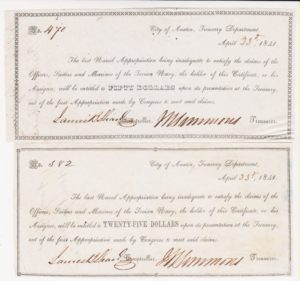 No. 470 City of Austin, Treasury Department,
April 23d 1841.
The last Naval Appropriation being inadequate to satisfy the claims of the
Officers, Sailors and Marines of the Texian Navy, the holder of this Certificate, or his
Assigns, will be entitled to FIFTY DOLLARS upon its presentation at the Treasury,
out of the first Appropriation made by Congress to meet said claims.
Comptroller. Treasurer.
No. 582 City of Austin, Treasury Department,
April 23d 1841.
The last Naval Appropriation being inadequate to satisfy the claims of the
Officers, Sailors and Marines of the Texian Navy, the holder of this Certificate, or his
Assigns, will be entitled to TWENTY-FIVE DOLLARS upon its presentation at the Treasury,
out of the first Appropriation made by Congress to meet said claims.
Comptroller. Treasurer.